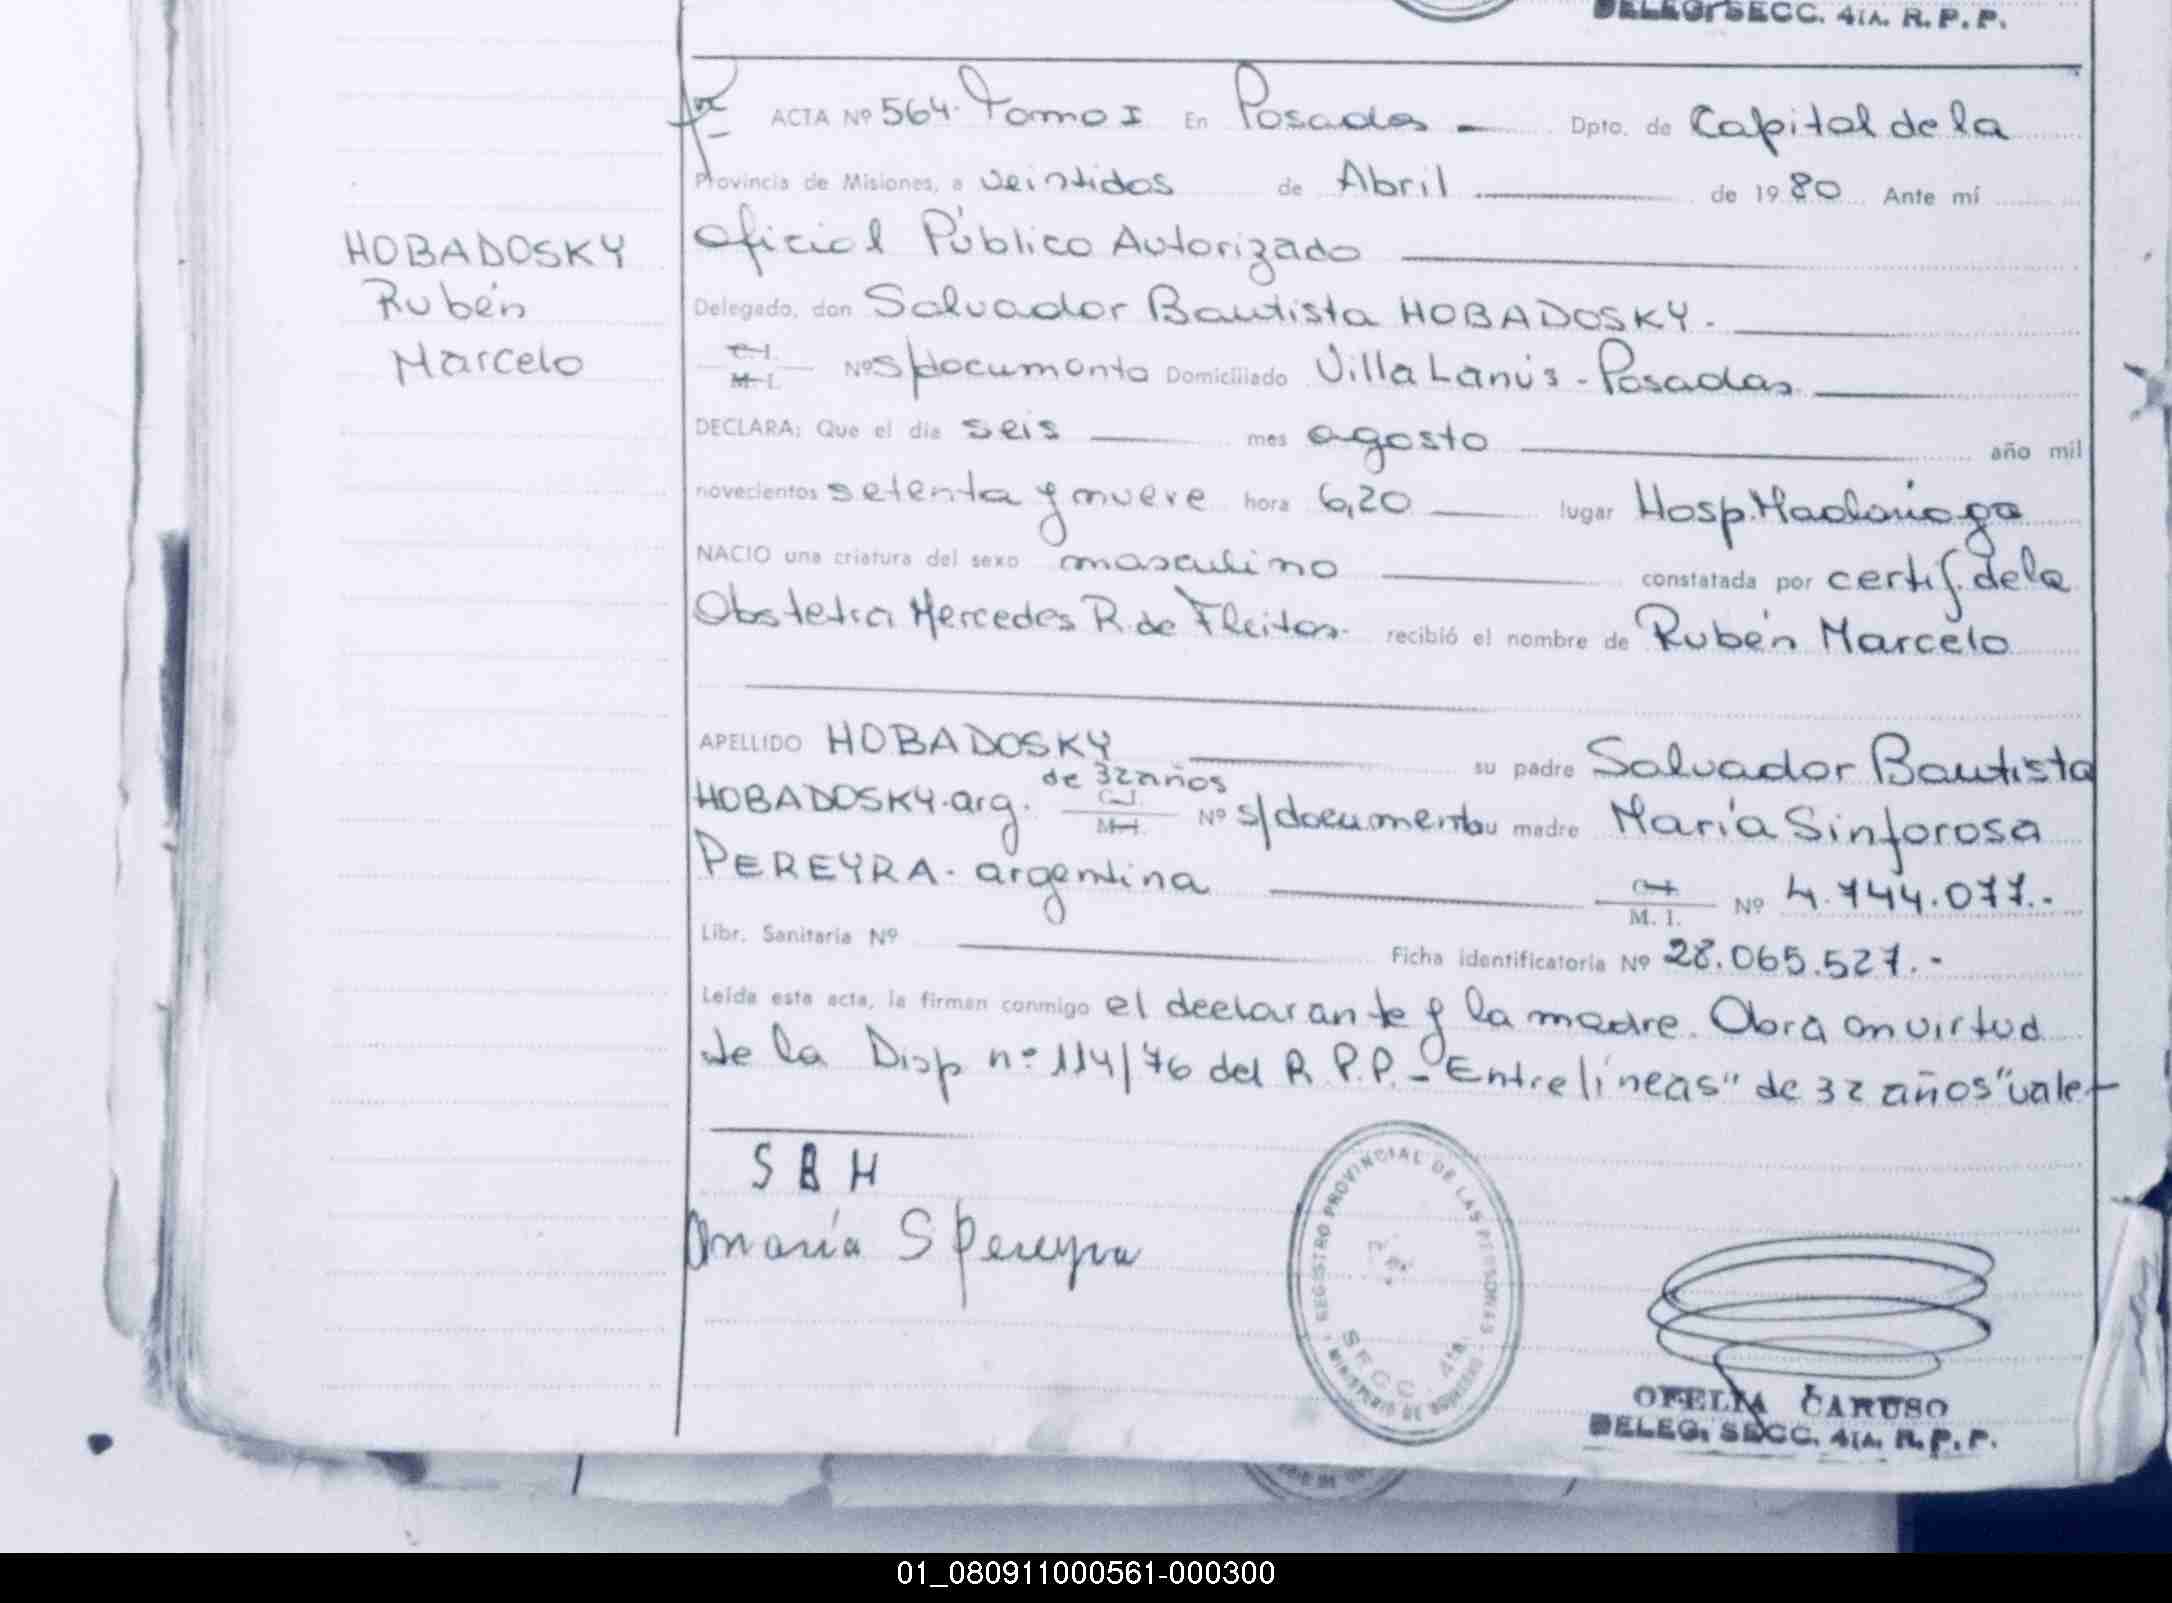 DELEG. SECC. 4ta. R. P. P.
ACTA Nº 564. Tomo I En Posadas Dpto. de Capital de la
Provincia de Misiones, a veintidos de Abril de 1980 Ante mí
Oficial Público Autorizado
HOBADOSKY
Rubén
Marcelo
Delegado, don Salvador Bautista HOBADOSKY.
C. I.
M. I. Nº s/documento Domiciliado Villa Lanús - Posadas
DECLARA: Que el día seis mes agosto año mil
novecientos setenta y nueve hora 6,20 lugar Hosp. Madariaga
NACIO una criatura del sexo masculino constatada por certif. de la
Obstetra Mercedes R. de Fleitas. recibió el nombre de Rubén Marcelo
APELLIDO HOBADOSKY su padre Salvador Bautista
de 32 años
HOBADOSKY. arg. C. I. M. I. Nº s/documento su madre María Sinforosa
PEREYRA. argentina C. I. M. I. Nº 4.744.077.-
Libr. Sanitaria Nº Ficha identificatoria Nº 28.065.527.-
Leída esta acta, la firman conmigo el declarante y la madre. Obra en virtud
de la Disp nº 114/76 del R. P. P. - Entrelíneas "de 32 años" vale-
S B H
María S Pereyra
REGISTRO PROVINCIAL DE LAS PERSONAS
SECC. 4ta.
MINISTERIO DE GOBIERNO
OFELIA CARUSO
DELEG. SECC. 4ta. R. P. P.
01_080911000561-000300